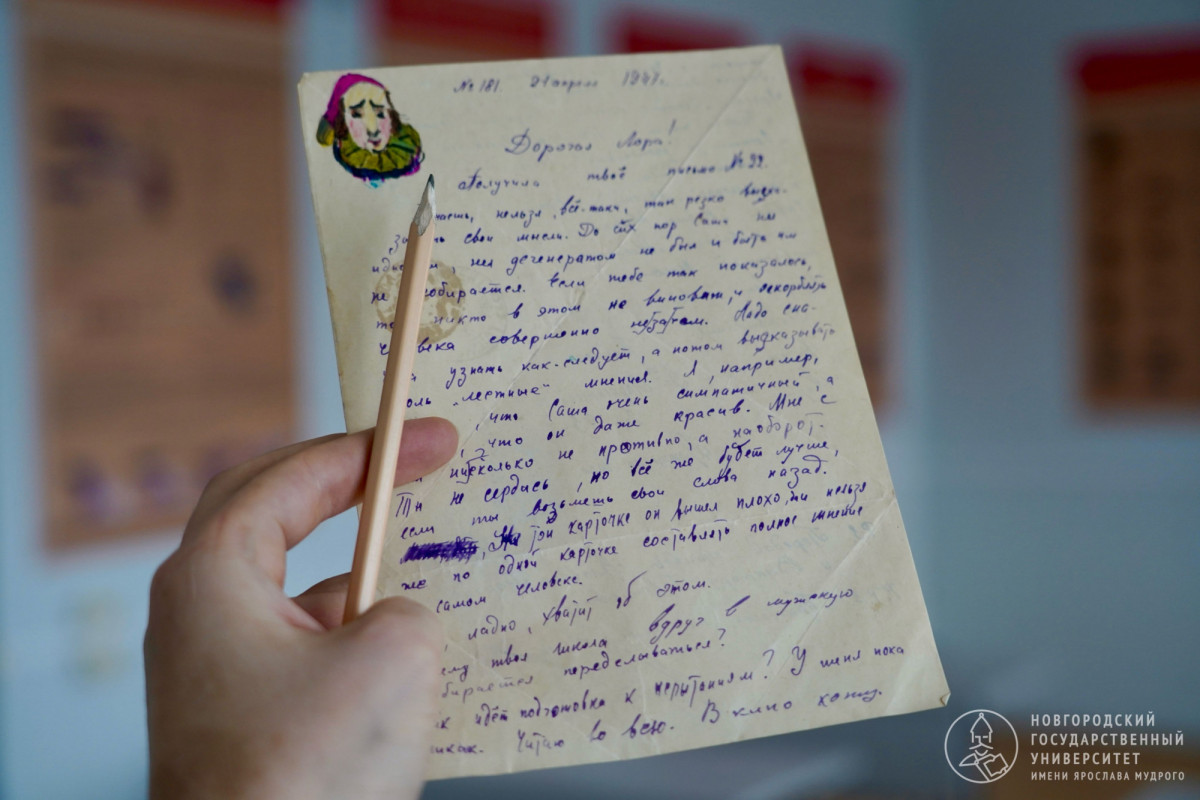 № 181. 21 апреля 1947г.
Дорогая Лора!
Получила твоё письмо № 22.
наешь, нельзя всё-таки, так резко выска-
за ь свои мысли. До сих пор Саша ни
идио м, ни дегенератом не был и быть им
не собирается. Если тебе так показалось,
то никто в этом не виноват, и оскорблять
ч века совершенно незачем. Надо сна-
узнать как-следует, а потом высказывать
оль „лестные" мнения. Я, например,
, что Саша очень симпатичный, а
, что он даже красив. Мне с
нисколько не противно, а наоборот.
Ты не сердись, но всё же будет лучше,
если ты возьмёшь свои слова назад.
На той карточке он вышел плохо, но нельзя
же по одной карточке составлять полное мнение
самом человеке.
ладно, хватит об этом.
ему твоя школа вдруг в мужскую
бирается переделываться?
ак идёт подготовка к испытаниям? У меня пока
никак. Читаю во всю. В кино хожу.
НОВГОРОДСКИЙ
ГОСУДАРСТВЕННЫЙ
УНИВЕРСИТЕТ
ИМЕНИ ЯРОСЛАВА МУДРОГО